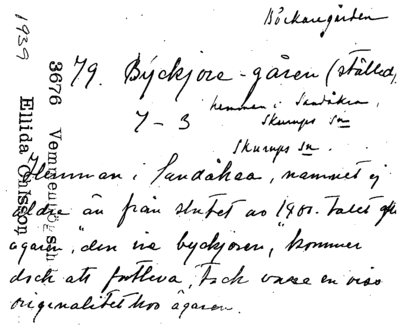 Böckaregården
1939
3676 Vemmenhögs h
Ellida Ohlsson
79. Býckjore-gåren (ställed)
hemman i Sandåkra,
7-3 Skurups sn
Skurups sn.
Hemman i Sandåkra, namnet ej
äldre än från slutet av 1800-talet
ägaren, "den ine byckjoren," kommer
dock att fortleva, tack vare en viss
originalitet hos ägaren.